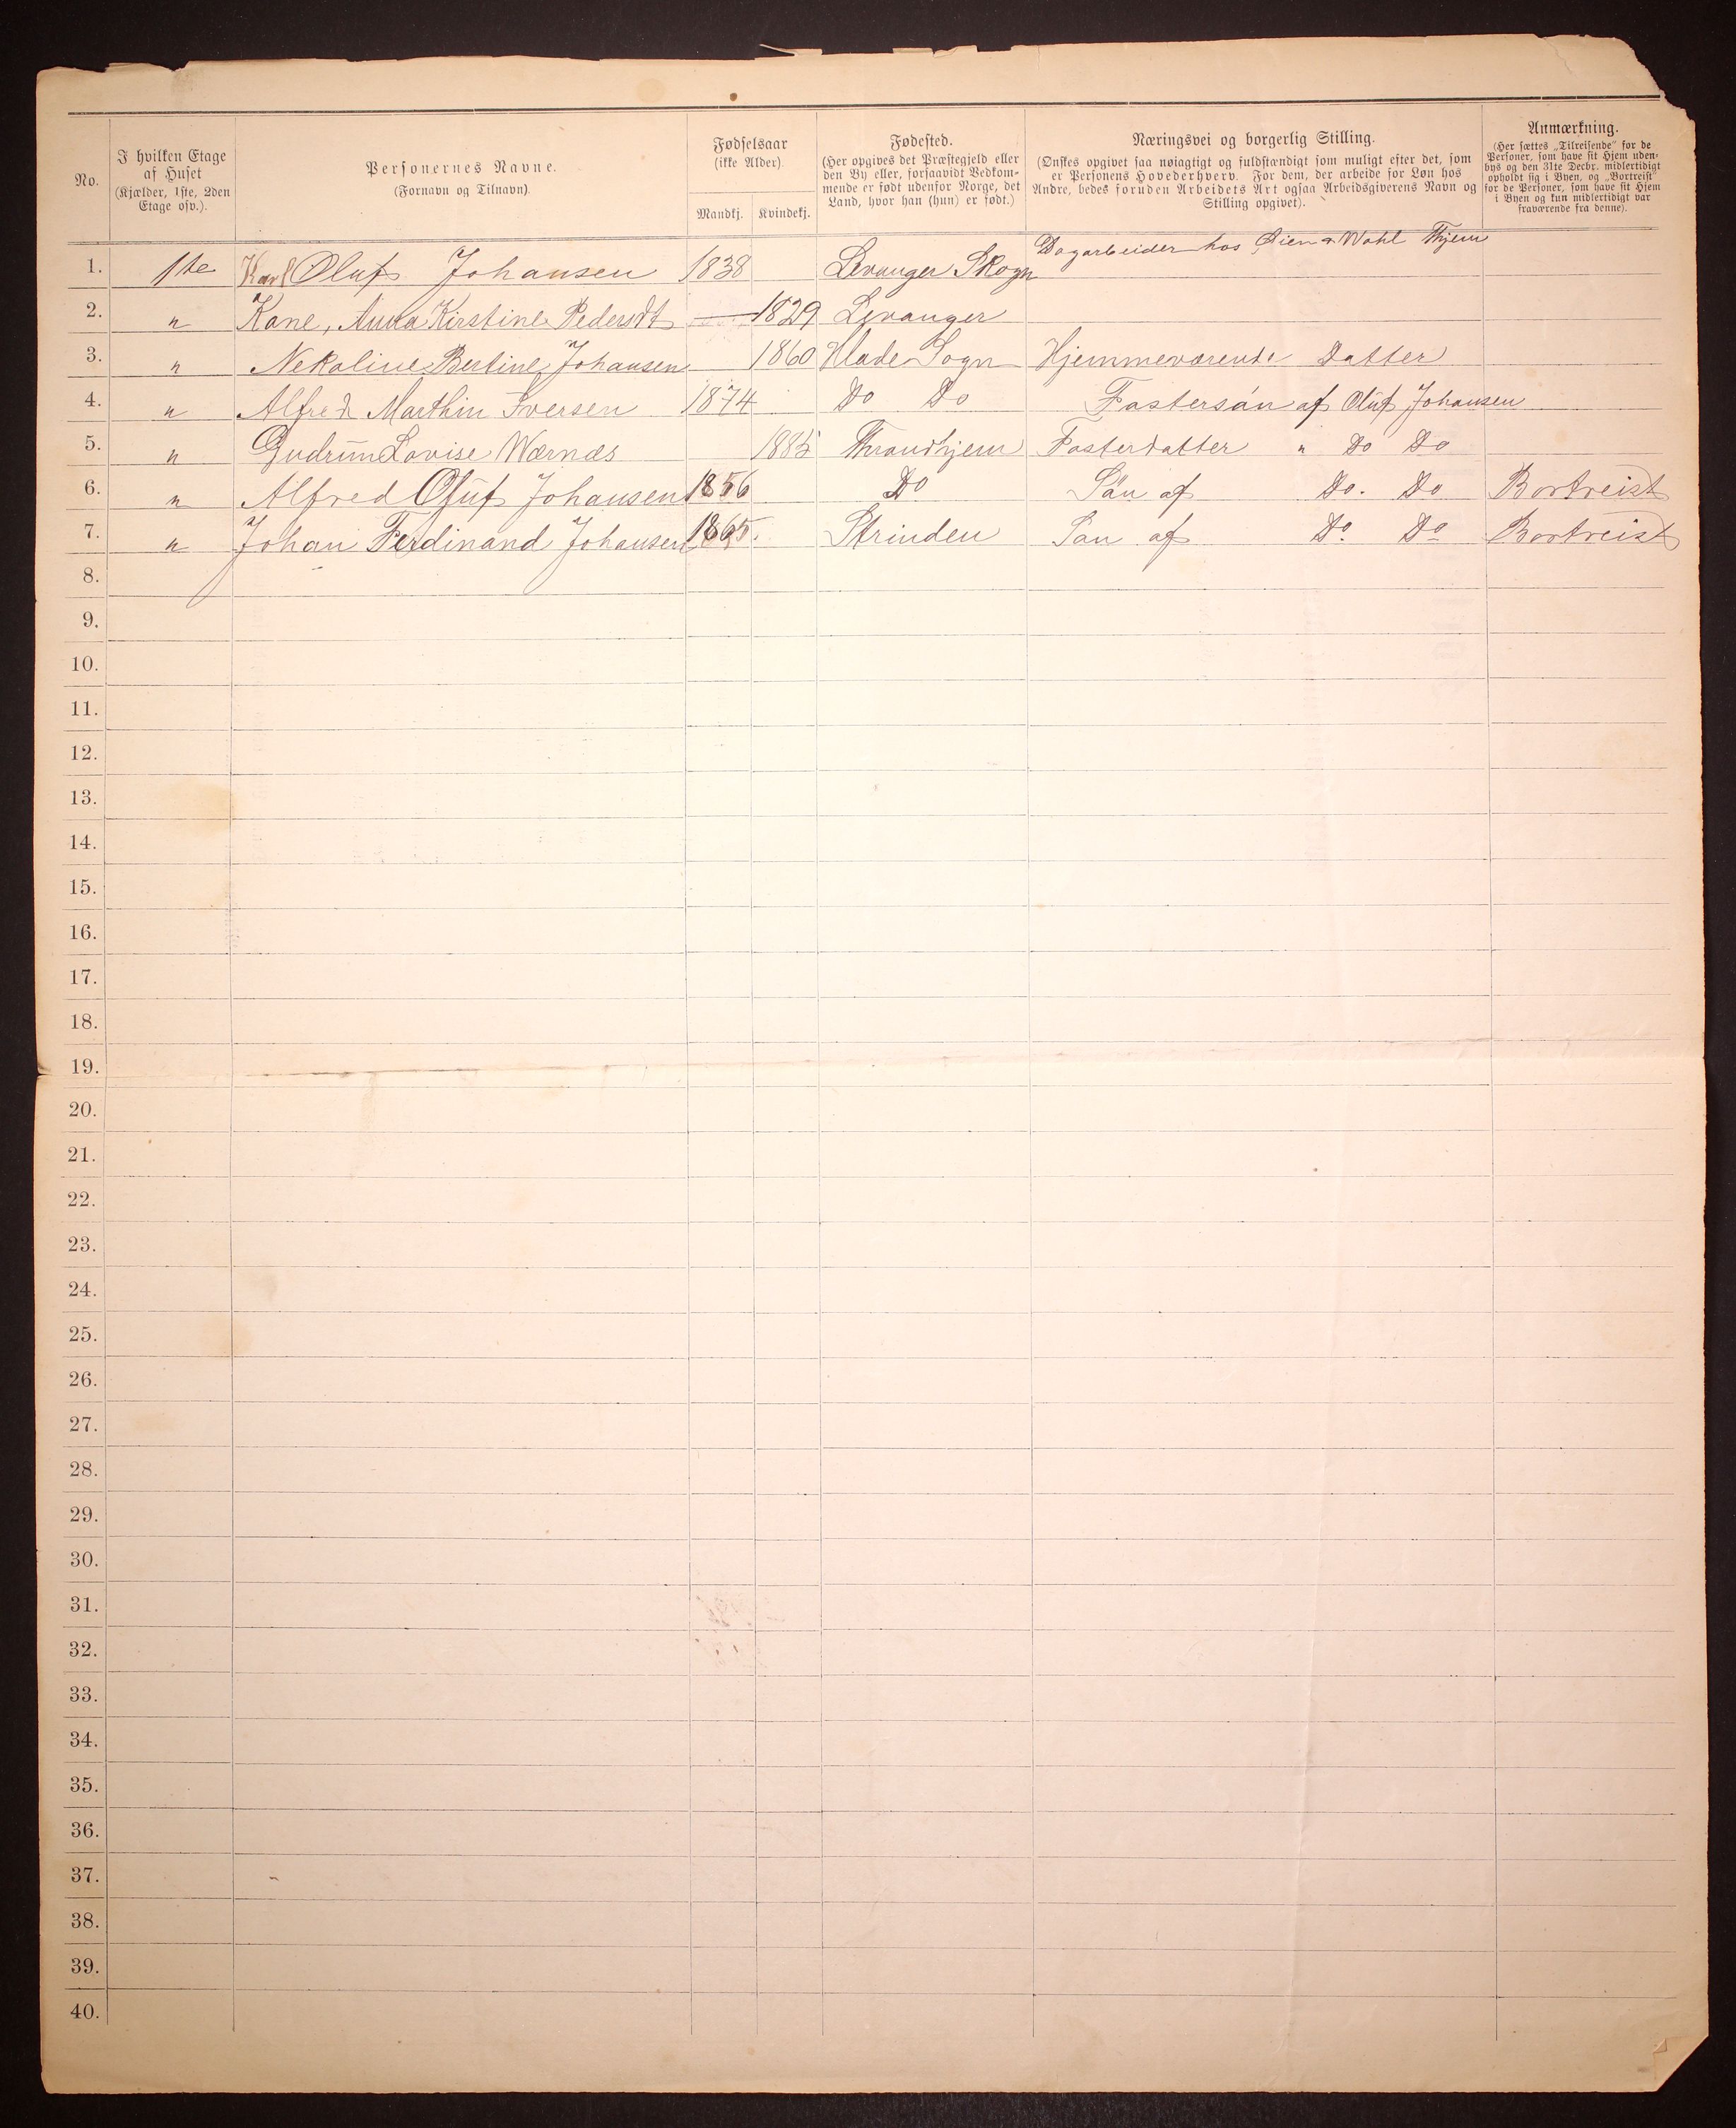 No.
I hvilken Etage
af Huset
(Kjælder, 1ste, 2den
Etage osv.).
Personernes Navne.
(Fornavn og Tilnavn).
Fødselsaar
(ikke Alder).
Mandkj. Kvindekj.
Fødested.
(Her opgives det Præstegjeld eller
den By eller, forsaavidt Vedkom-
mende er født udenfor Norge, det
Land, hvor han (hun) er født.)
Næringsvei og borgerlig Stilling.
(Ønskes opgivet saa nøiagtigt og fuldstændigt som muligt efter det, som
er Personens Hovederhverv. For dem, der arbeide for Løn hos
Andre, bedes foruden Arbeidets Art ogsaa Arbeidsgiverens Navn og
Stilling opgivet).
Anmærkning.
(Her sættes „Tilreisende“ for de
Personer, som have sit Hjem uden-
bys og den 31te Decbr. midlertidigt
opholdt sig i Byen, og „Bortreist“
for de Personer, som have sit Hjem
i Byen og kun midlertidigt var
fraværende fra denne).
1. 1ste Karl Oluf Johansen 1838 Levanger Skogn Dagarbeider hos Øien & Wahl Thjem
2. " Kone, Anna Kirstine Pedersdt — 1829 Levanger
3. " Nekoline Bertine Johansen 1860 Hlade Sogn Hjemmeværende Datter
4. " Alfred Marthin Iversen 1874 Do Do Fostersøn af Oluf Johansen
5. " Gudrun Lovise Wærnæs 1885 Throndhjem Fosterdatter " Do Do
6. " Alfred Oluf Johansen 1856 Do Søn af Do. Do Bortreist
7. " Johan Ferdinand Johansen 1865. Strinden Søn af Do Do Bortreist
8.
9.
10.
11.
12.
13.
14.
15.
16.
17.
18.
19.
20.
21.
22.
23.
24.
25.
26.
27.
28.
29.
30.
31.
32.
33.
34.
35.
36.
37.
38.
39.
40.